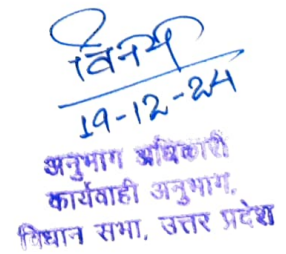 विनय
19-12-24
अनुभाग अधिकारी
कार्यवाही अनुभाग,
विधान सभा, उत्तर प्रदेश